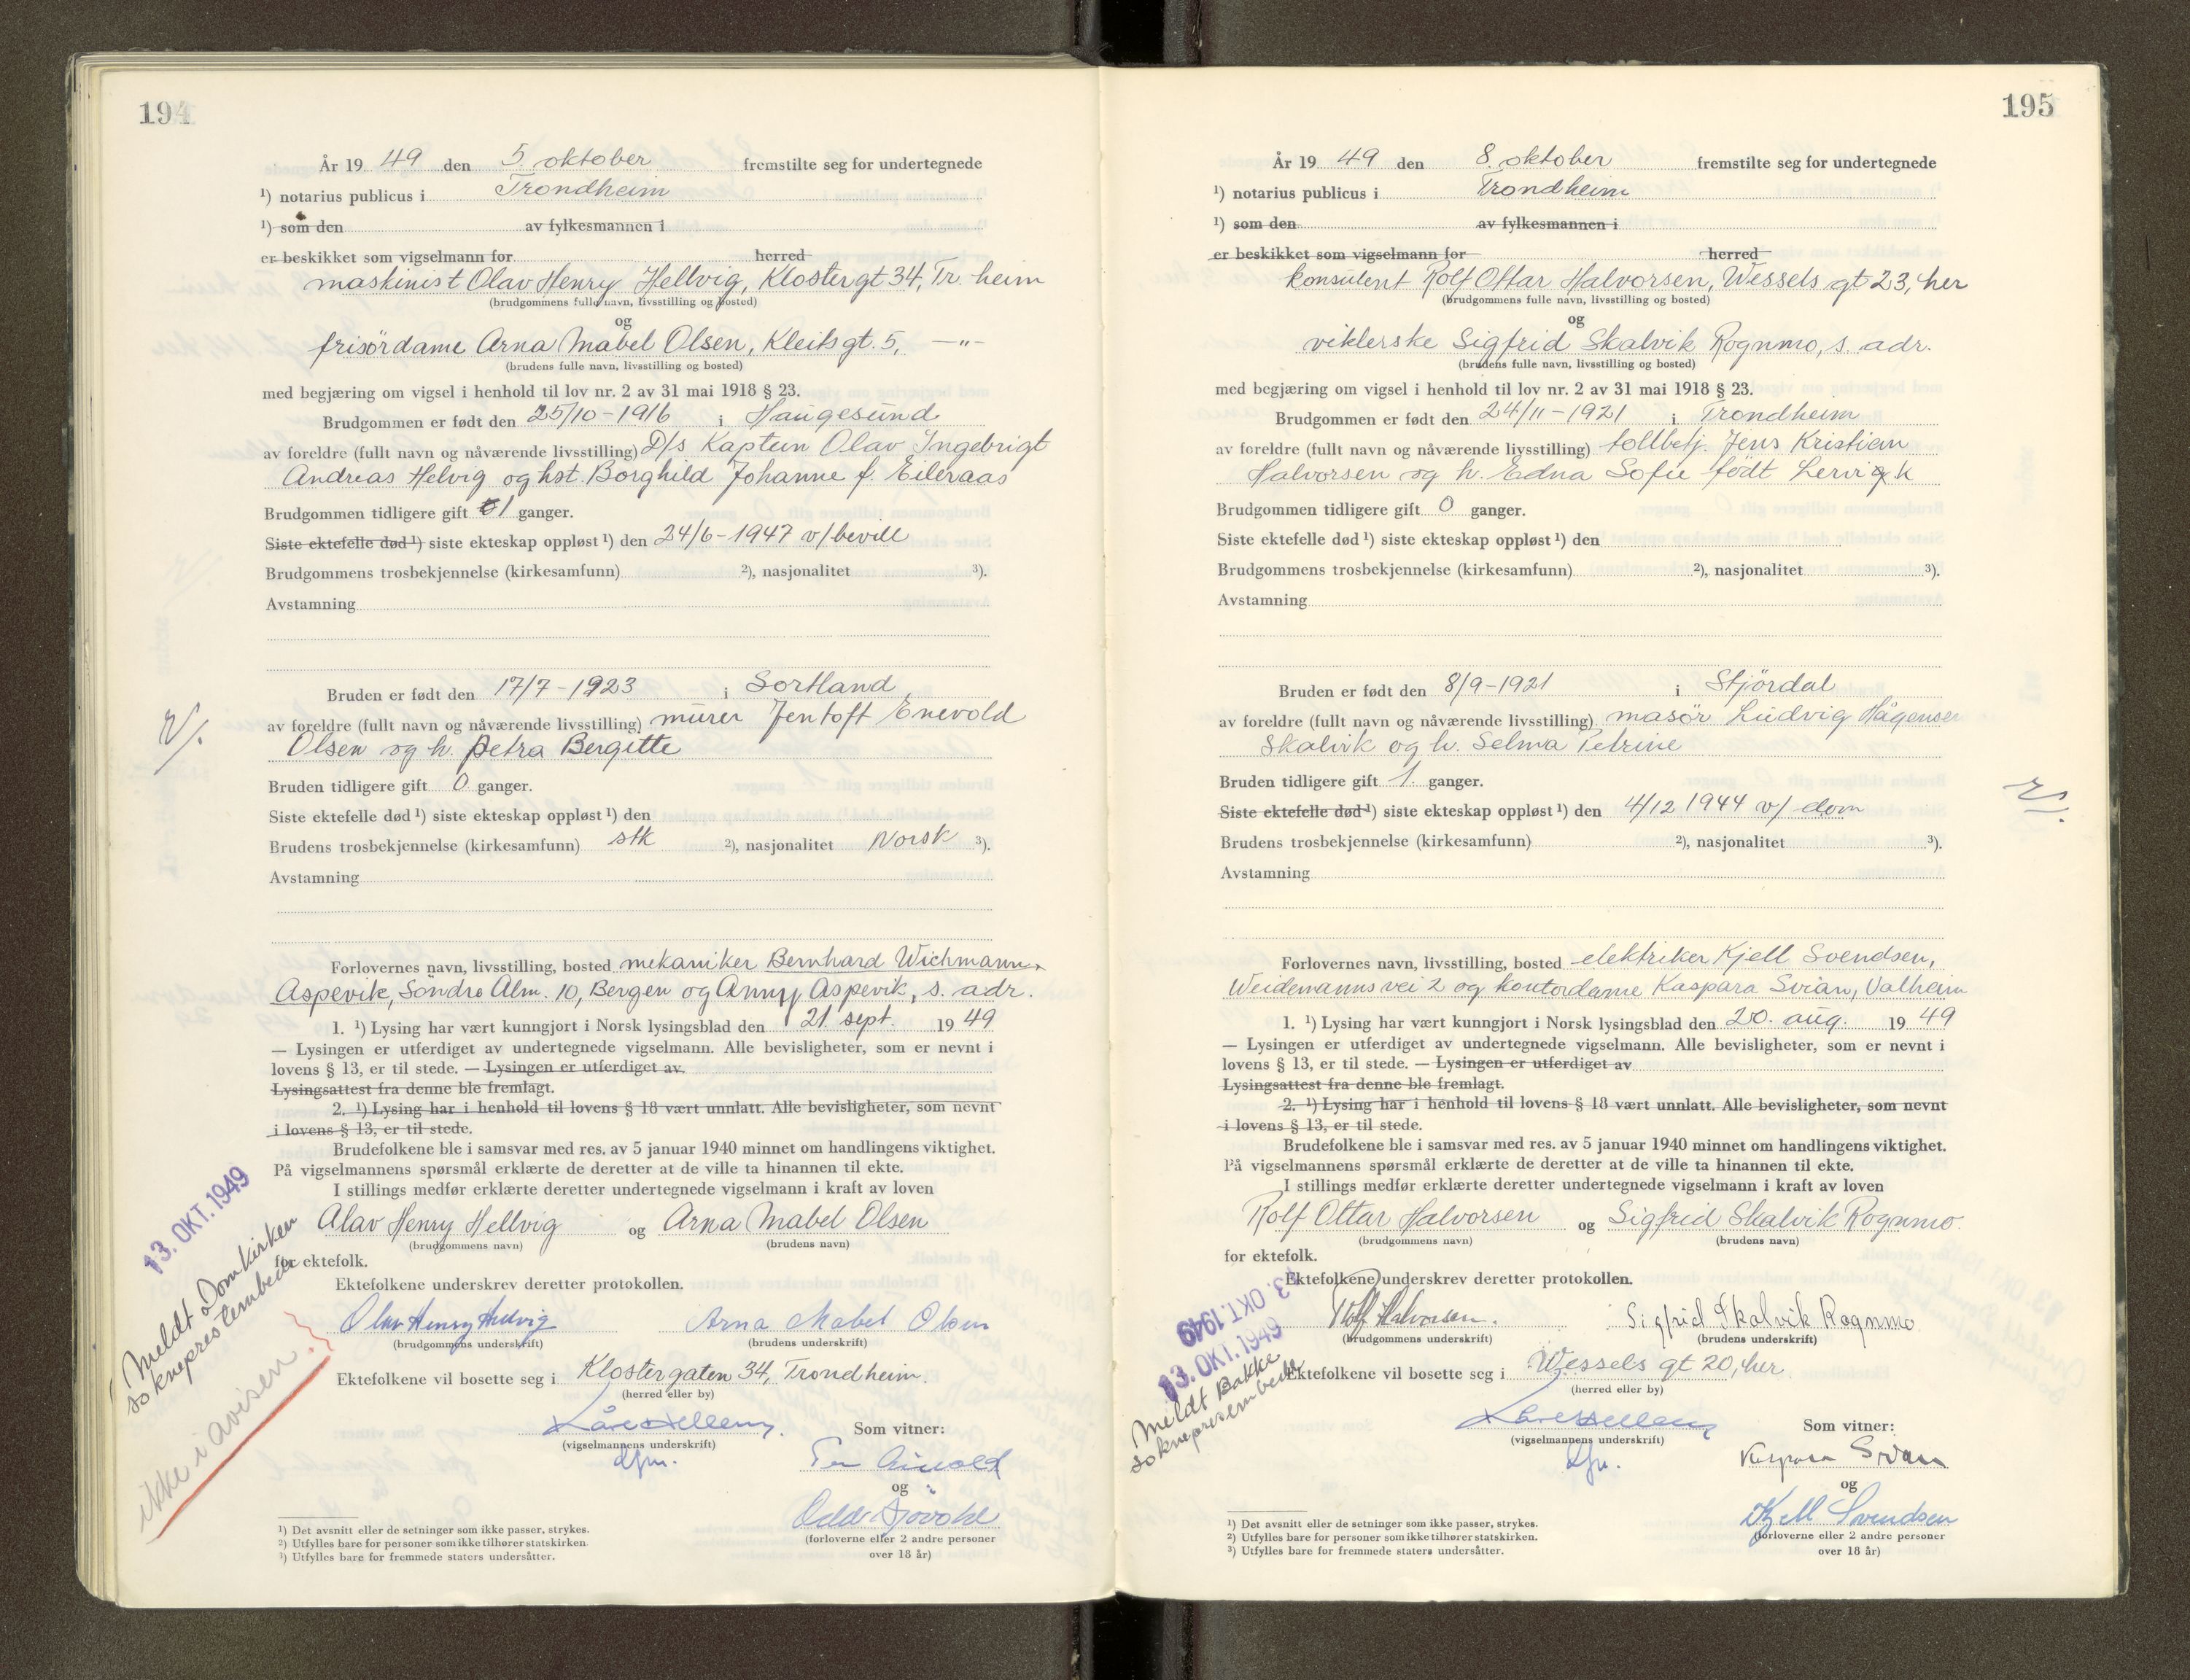 194
År 19 49 den 5. oktober fremstilte seg for undertegnede
¹) notarius publicus i Trondheim
¹) som den av fylkesmannen i
er beskikket som vigselmann for herred
maskinist Olav Henry Hellvig, Klostergt 34, Tr. heim
(brudgommens fulle navn, livsstilling og bosted)
og
frisördame Arna Mabel Olsen, Kleitsgt. 5, —"—
(brudens fulle navn, livsstilling og bosted)
med begjæring om vigsel i henhold til lov nr. 2 av 31 mai 1918 § 23.
Brudgommen er født den 25/10-1916 i Haugesund
av foreldre (fullt navn og nåværende livsstilling) D/s Kaptein Olav Ingebrigt
Andreas Helvig og hst. Borghild Johanne f. Eileraas
Brudgommen tidligere gift 1 ganger.
Siste ektefelle død ¹) siste ekteskap oppløst ¹) den 24/6-1947 v/bevill
Brudgommens trosbekjennelse (kirkesamfunn) ²), nasjonalitet ³).
Avstamning
Bruden er født den 17/7-1923 i Sortland,
av foreldre (fullt navn og nåværende livsstilling) murer Jentoft Enevold
Olsen og h. Petra Bergitte
Bruden tidligere gift 0 ganger.
Siste ektefelle død ¹) siste ekteskap oppløst ¹) den
Brudens trosbekjennelse (kirkesamfunn) stk ²), nasjonalitet Norsk ³).
Avstamning
Forlovernes navn, livsstilling, bosted mekaniker Bernhard Wichmann
Aspevik, Söndre Alm. 10, Bergen og Anny Aspevik, s. adr.
1. ¹) Lysing har vært kunngjort i Norsk lysingsblad den 21. sept. 19 49
— Lysingen er utferdiget av undertegnede vigselmann. Alle bevisligheter, som er nevnt i
lovens § 13, er til stede. — Lysingen er utferdiget av
Lysingsattest fra denne ble fremlagt.
2. ¹) Lysing har i henhold til lovens § 18 vært unnlatt. Alle bevisligheter, som nevnt
i lovens § 13, er til stede.
Brudefolkene ble i samsvar med res. av 5 januar 1940 minnet om handlingens viktighet.
På vigselmannens spørsmål erklærte de deretter at de ville ta hinannen til ekte.
I stillings medfør erklærte deretter undertegnede vigselmann i kraft av loven
Olav Henry Hellvig og Arna Mabel Olsen
(brudgommens navn) (brudens navn)
for ektefolk.
Ektefolkene underskrev deretter protokollen.
Olav Henry Helvig Arna Mabel Olsen
(brudgommens underskrift) (brudens underskrift)
Ektefolkene vil bosette seg i Klostergaten 34, Trondheim.
(herred eller by)
Som vitner:
(vigselmannens underskrift)
dfm.
og
Odd
(forloverne eller 2 andre personer
over 18 år)
¹) Det avsnitt eller de setninger som ikke passer, strykes.
²) Utfylles bare for personer som ikke tilhører statskirken.
³) Utfylles bare for fremmede staters undersåtter.
13. OKT. 1949
Meldt Domkirken
sokneprestembede
ikke i avisen!
195
År 19 49 den 8. oktober fremstilte seg for undertegnede
¹) notarius publicus i Trondheim
¹) som den av fylkesmannen i
er beskikket som vigselmann for herred
konsulent Rolf Ottar Halvorsen, Wessels gt 23, her
(brudgommens fulle navn, livsstilling og bosted)
og
viklerske Sigfrid Skalvik Rognmo, s. adr.
(brudens fulle navn, livsstilling og bosted)
med begjæring om vigsel i henhold til lov nr. 2 av 31 mai 1918 § 23.
Brudgommen er født den 24/11-1921 i Trondheim
av foreldre (fullt navn og nåværende livsstilling) tollbetj. Jens Kristian
Halvorsen og h. Edna Sofie født Lervik
Brudgommen tidligere gift 0 ganger.
Siste ektefelle død ¹) siste ekteskap oppløst ¹) den
Brudgommens trosbekjennelse (kirkesamfunn) ²), nasjonalitet ³).
Avstamning
Bruden er født den 8/9-1921 i Stjördal
av foreldre (fullt navn og nåværende livsstilling) masör Ludvig Hågensen
Skalvik og h. Selma Petrine
Bruden tidligere gift 1. ganger.
Siste ektefelle død ¹) siste ekteskap oppløst ¹) den 4/12 1944 v/ dom
Brudens trosbekjennelse (kirkesamfunn) ²), nasjonalitet ³).
Avstamning
Forlovernes navn, livsstilling, bosted elektriker Kjell Svendsen,
Weidemanns vei 2 og kontordame Kaspara Svian, Valheim
1. ¹) Lysing har vært kunngjort i Norsk lysingsblad den 20. aug. 19 49
— Lysingen er utferdiget av undertegnede vigselmann. Alle bevisligheter, som er nevnt i
lovens § 13, er til stede. — Lysingen er utferdiget av
Lysingsattest fra denne ble fremlagt.
2. ¹) Lysing har i henhold til lovens § 18 vært unnlatt. Alle bevisligheter, som nevnt
i lovens § 13, er til stede.
Brudefolkene ble i samsvar med res. av 5 januar 1940 minnet om handlingens viktighet.
På vigselmannens spørsmål erklærte de deretter at de ville ta hinannen til ekte.
I stillings medfør erklærte deretter undertegnede vigselmann i kraft av loven
Rolf Ottar Halvorsen og Sigfrid Skalvik Rognmo.
(brudgommens navn) (brudens navn)
for ektefolk.
Ektefolkene underskrev deretter protokollen.
Rolf Halvorsen. Sigfrid Skalvik Rognmo
(brudgommens underskrift) (brudens underskrift)
Ektefolkene vil bosette seg i Wessels gt 20, her
(herred eller by)
Som vitner:
(vigselmannens underskrift)
dfm.
Kaspara Svian
og
Kjell Svendsen
(forloverne eller 2 andre personer
over 18 år)
¹) Det avsnitt eller de setninger som ikke passer, strykes.
²) Utfylles bare for personer som ikke tilhører statskirken.
³) Utfylles bare for fremmede staters undersåtter.
13. OKT. 1949
13. OKT. 1949
Meldt Bakke
sokneprestembede